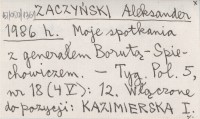 ZACZYŃSKI Aleksander
1986 h. Moje spotkania
z generałem Borutą-Spie-
chowiczem. — Tyg. Pol. 5,
nr 18 (4 V): 12. Włączone
do pozycji: KAZIMIERSKA I.